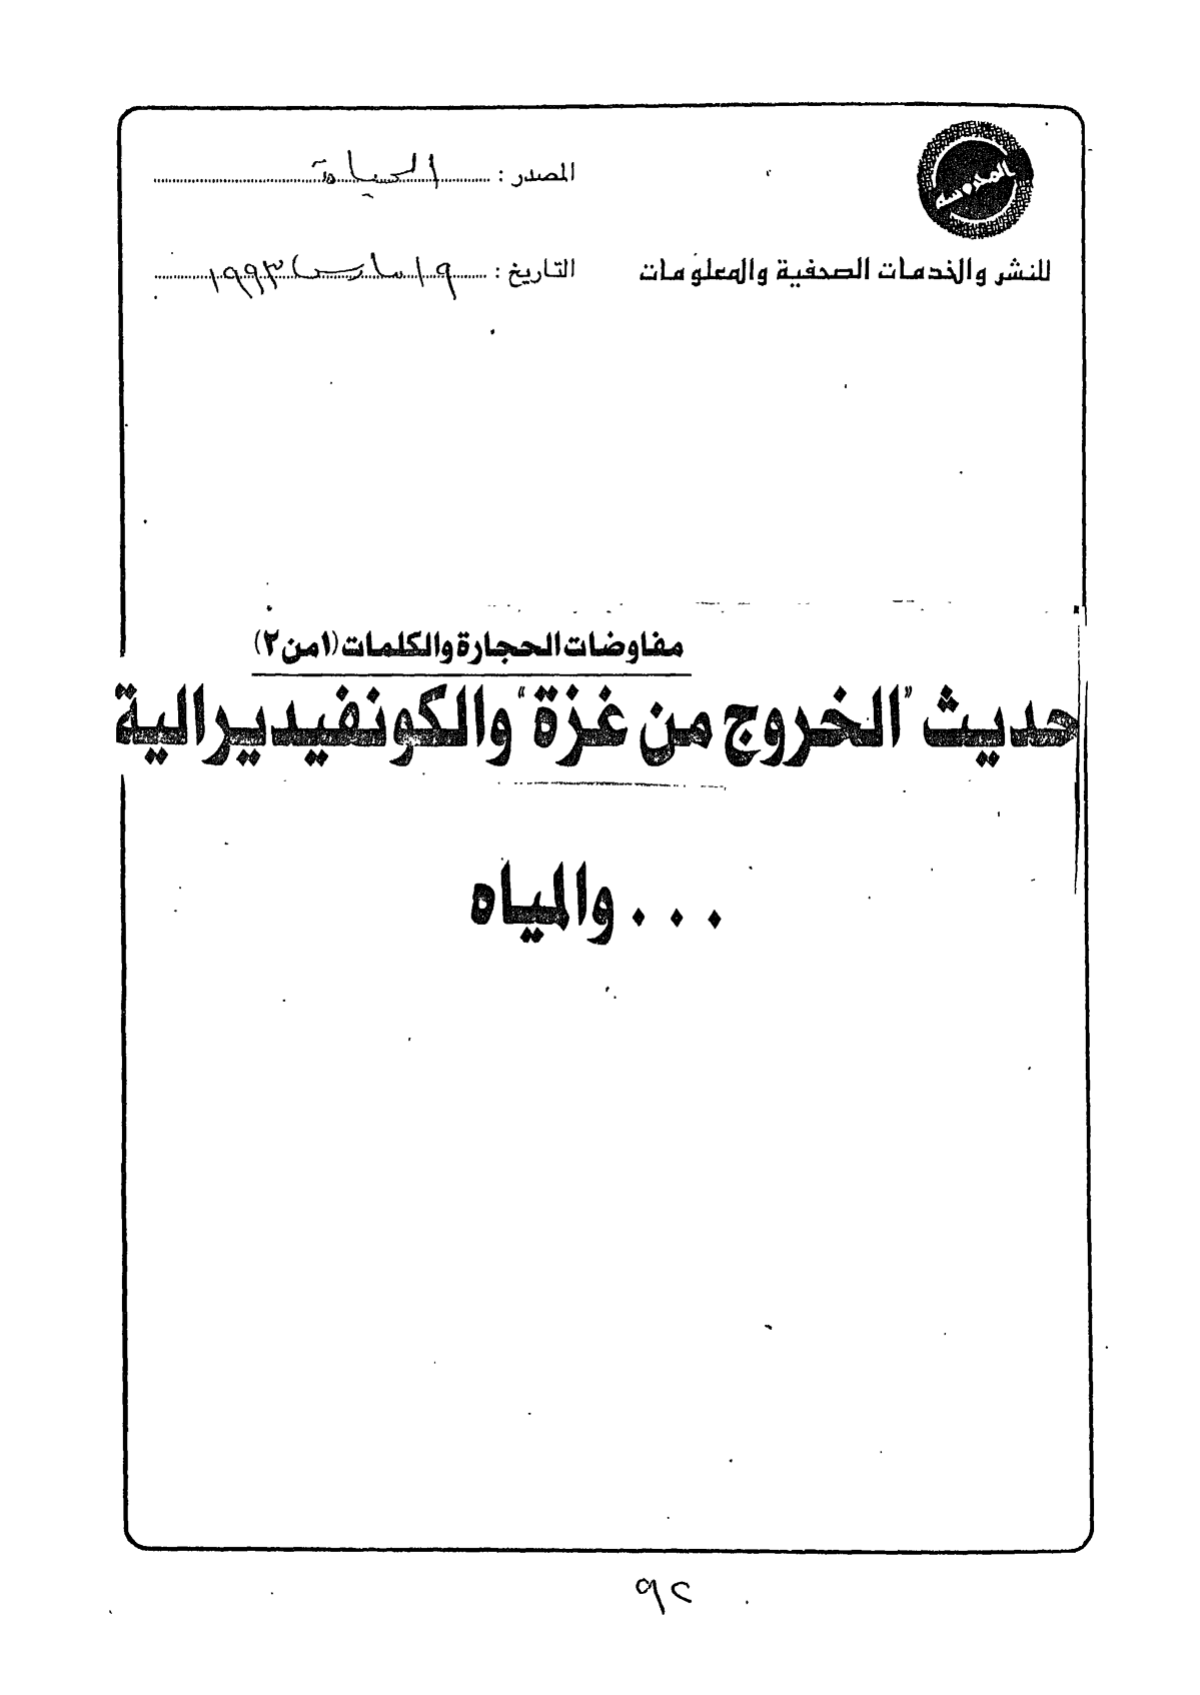 المدوسه
المصدر : الحياة
للنشر والخدمات الصحفية والمعلومات
التاريخ : ١٩ مارس ١٩٩٣
مفاوضات الحجارة والكلمات (١ من ٢)
حديث "الخروج من غزة" والكونفيديرالية
. . . والمياه